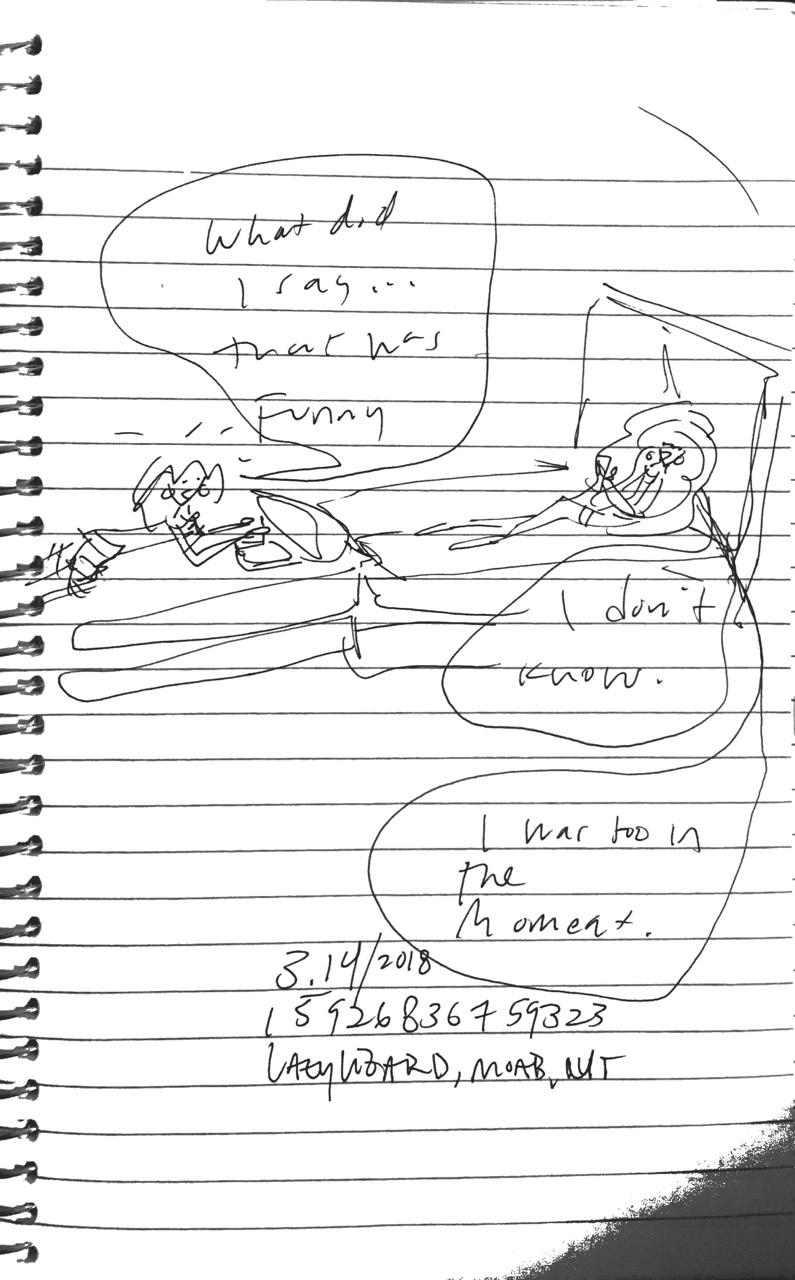 What did
I say...
that was
Funny
I don't
know.
I was too in
the
Moment.
3.14/2018
1592683675 9323
LAZY LIZARD, MOAB, UT